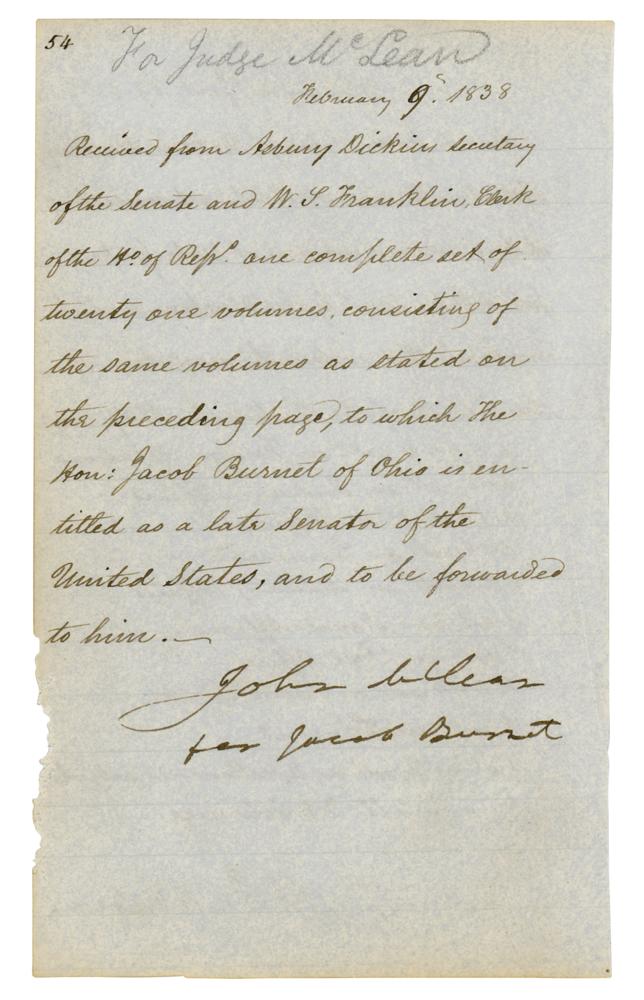 54
For Judge McLean
February 9. 1838
Received from Asbury Dickins Secretary
of the Senate and W. S. Franklin, Clerk
of the Ho. of Reps. one complete set of
twenty one volumes, consisting of
the same volumes as stated on
the preceding page, to which The
Hon: Jacob Burnet of Ohio is en-
titled as a late Senator of the
United States, and to be forwarded
to him.—
John McLean
for Jacob Burnet